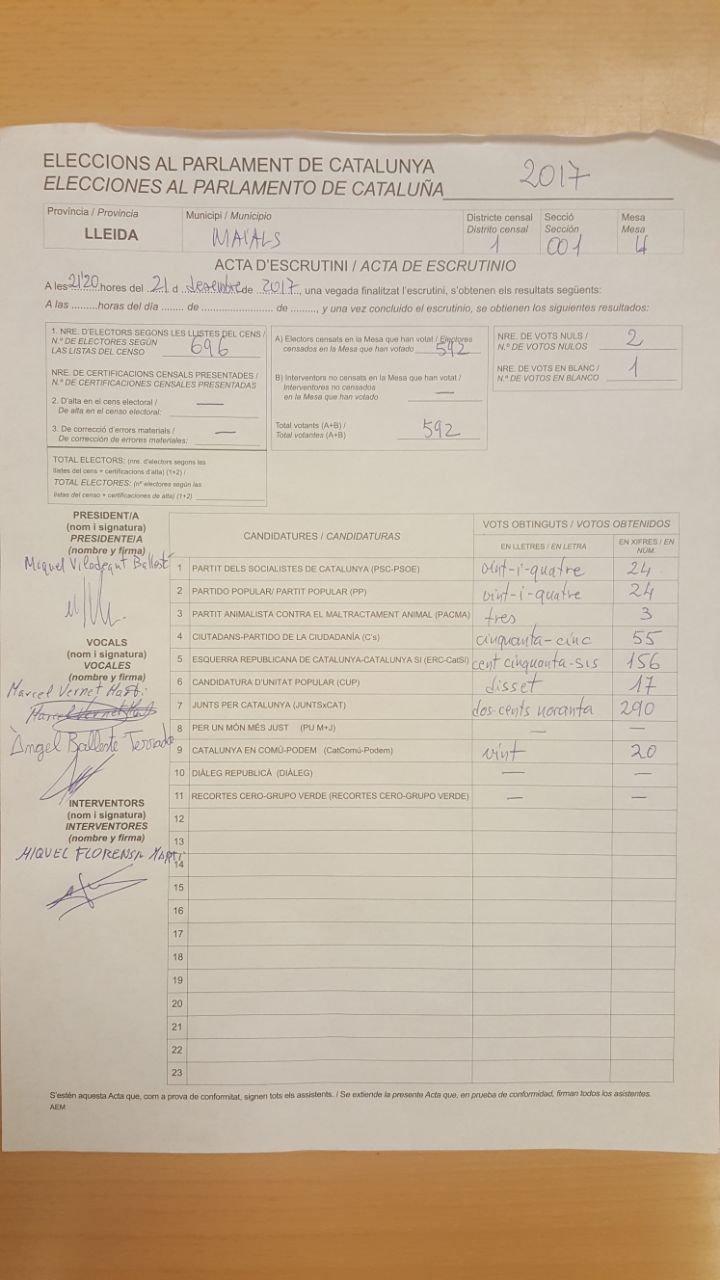 ELECCIONS AL PARLAMENT DE CATALUNYA
ELECCIONES AL PARLAMENTO DE CATALUÑA 2017
Província / Provincia
LLEIDA
Municipi / Municipio
MAIALS
Districte censal
Distrito censal
1
Secció
Sección
001
Mesa
Mesa
U
ACTA D'ESCRUTINI / ACTA DE ESCRUTINIO
A les 21'20 hores del 21 d desembre de 2017, una vegada finalitzat l'escrutini, s'obtenen els resultats següents:
A las .........horas del día ...... de ........................ de ........., y una vez concluido el escrutinio, se obtienen los siguientes resultados:
1. NRE. D'ELECTORS SEGONS LES LLISTES DEL CENS /
N.º DE ELECTORES SEGÚN
LAS LISTAS DEL CENSO 696
NRE. DE CERTIFICACIONS CENSALS PRESENTADES /
N.º DE CERTIFICACIONES CENSALES PRESENTADAS
2. D'alta en el cens electoral /
De alta en el censo electoral: —
3. De correcció d'errors materials /
De corrección de errores materiales: —
TOTAL ELECTORS: (nre. d'electors segons les
llistes del cens + certificacions d'alta) (1+2) /
TOTAL ELECTORES: (nº electores según las
listas del censo + certificaciones de alta) (1+2)
A) Electors censats en la Mesa que han votat / Electores
censados en la Mesa que han votado 592
B) Interventors no censats en la Mesa que han votat /
Interventores no censados
en la Mesa que han votado —
Total votants (A+B) /
Total votantes (A+B) 592
NRE. DE VOTS NULS /
N.º DE VOTOS NULOS 2
NRE. DE VOTS EN BLANC /
N.º DE VOTOS EN BLANCO 1
PRESIDENT/A
(nom i signatura)
PRESIDENTE/A
(nombre y firma)
Miquel
VOCALS
(nom i signatura)
VOCALES
(nombre y firma)
Marcel Vernet
Àngel
INTERVENTORS
(nom i signatura)
INTERVENTORES
(nombre y firma)
MIQUEL FLORENSA MARTÍ
CANDIDATURES / CANDIDATURAS
VOTS OBTINGUTS / VOTOS OBTENIDOS
EN LLETRES / EN LETRA
EN XIFRES / EN NÚM.
1 PARTIT DELS SOCIALISTES DE CATALUNYA (PSC-PSOE) vint-i-quatre 24
2 PARTIDO POPULAR/ PARTIT POPULAR (PP) vint-i-quatre 24
3 PARTIT ANIMALISTA CONTRA EL MALTRACTAMENT ANIMAL (PACMA) tres 3
4 CIUTADANS-PARTIDO DE LA CIUDADANÍA (C's) cinquanta-cinc 55
5 ESQUERRA REPUBLICANA DE CATALUNYA-CATALUNYA SI (ERC-CatSí) cent cinquanta-sis 156
6 CANDIDATURA D'UNITAT POPULAR (CUP) disset 17
7 JUNTS PER CATALUNYA (JUNTSxCAT) dos-cents noranta 290
8 PER UN MÓN MÉS JUST (PU M+J) — —
9 CATALUNYA EN COMÚ-PODEM (CatComú-Podem) vint 20
10 DIÀLEG REPUBLICÀ (DIÀLEG) — —
11 RECORTES CERO-GRUPO VERDE (RECORTES CERO-GRUPO VERDE) — —
12
13
14
15
16
17
18
19
20
21
22
23
S'estén aquesta Acta que, com a prova de conformitat, signen tots els assistents. / Se extiende la presente Acta que, en prueba de conformidad, firman todos los asistentes.
AEM